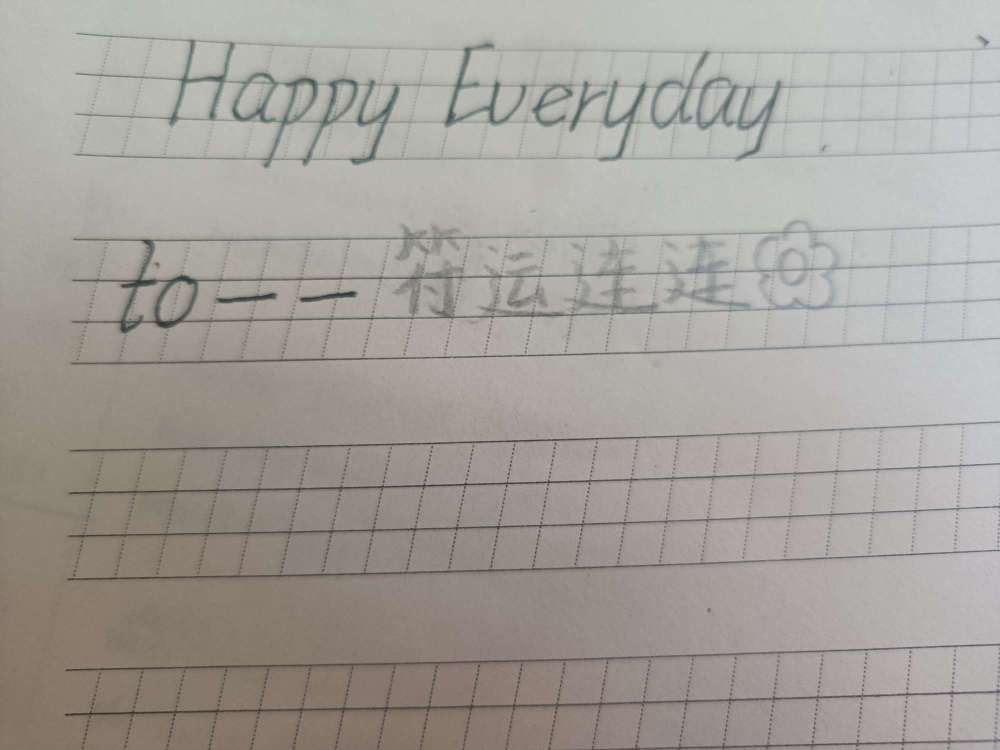 Happy Everyday.
to——符运连连